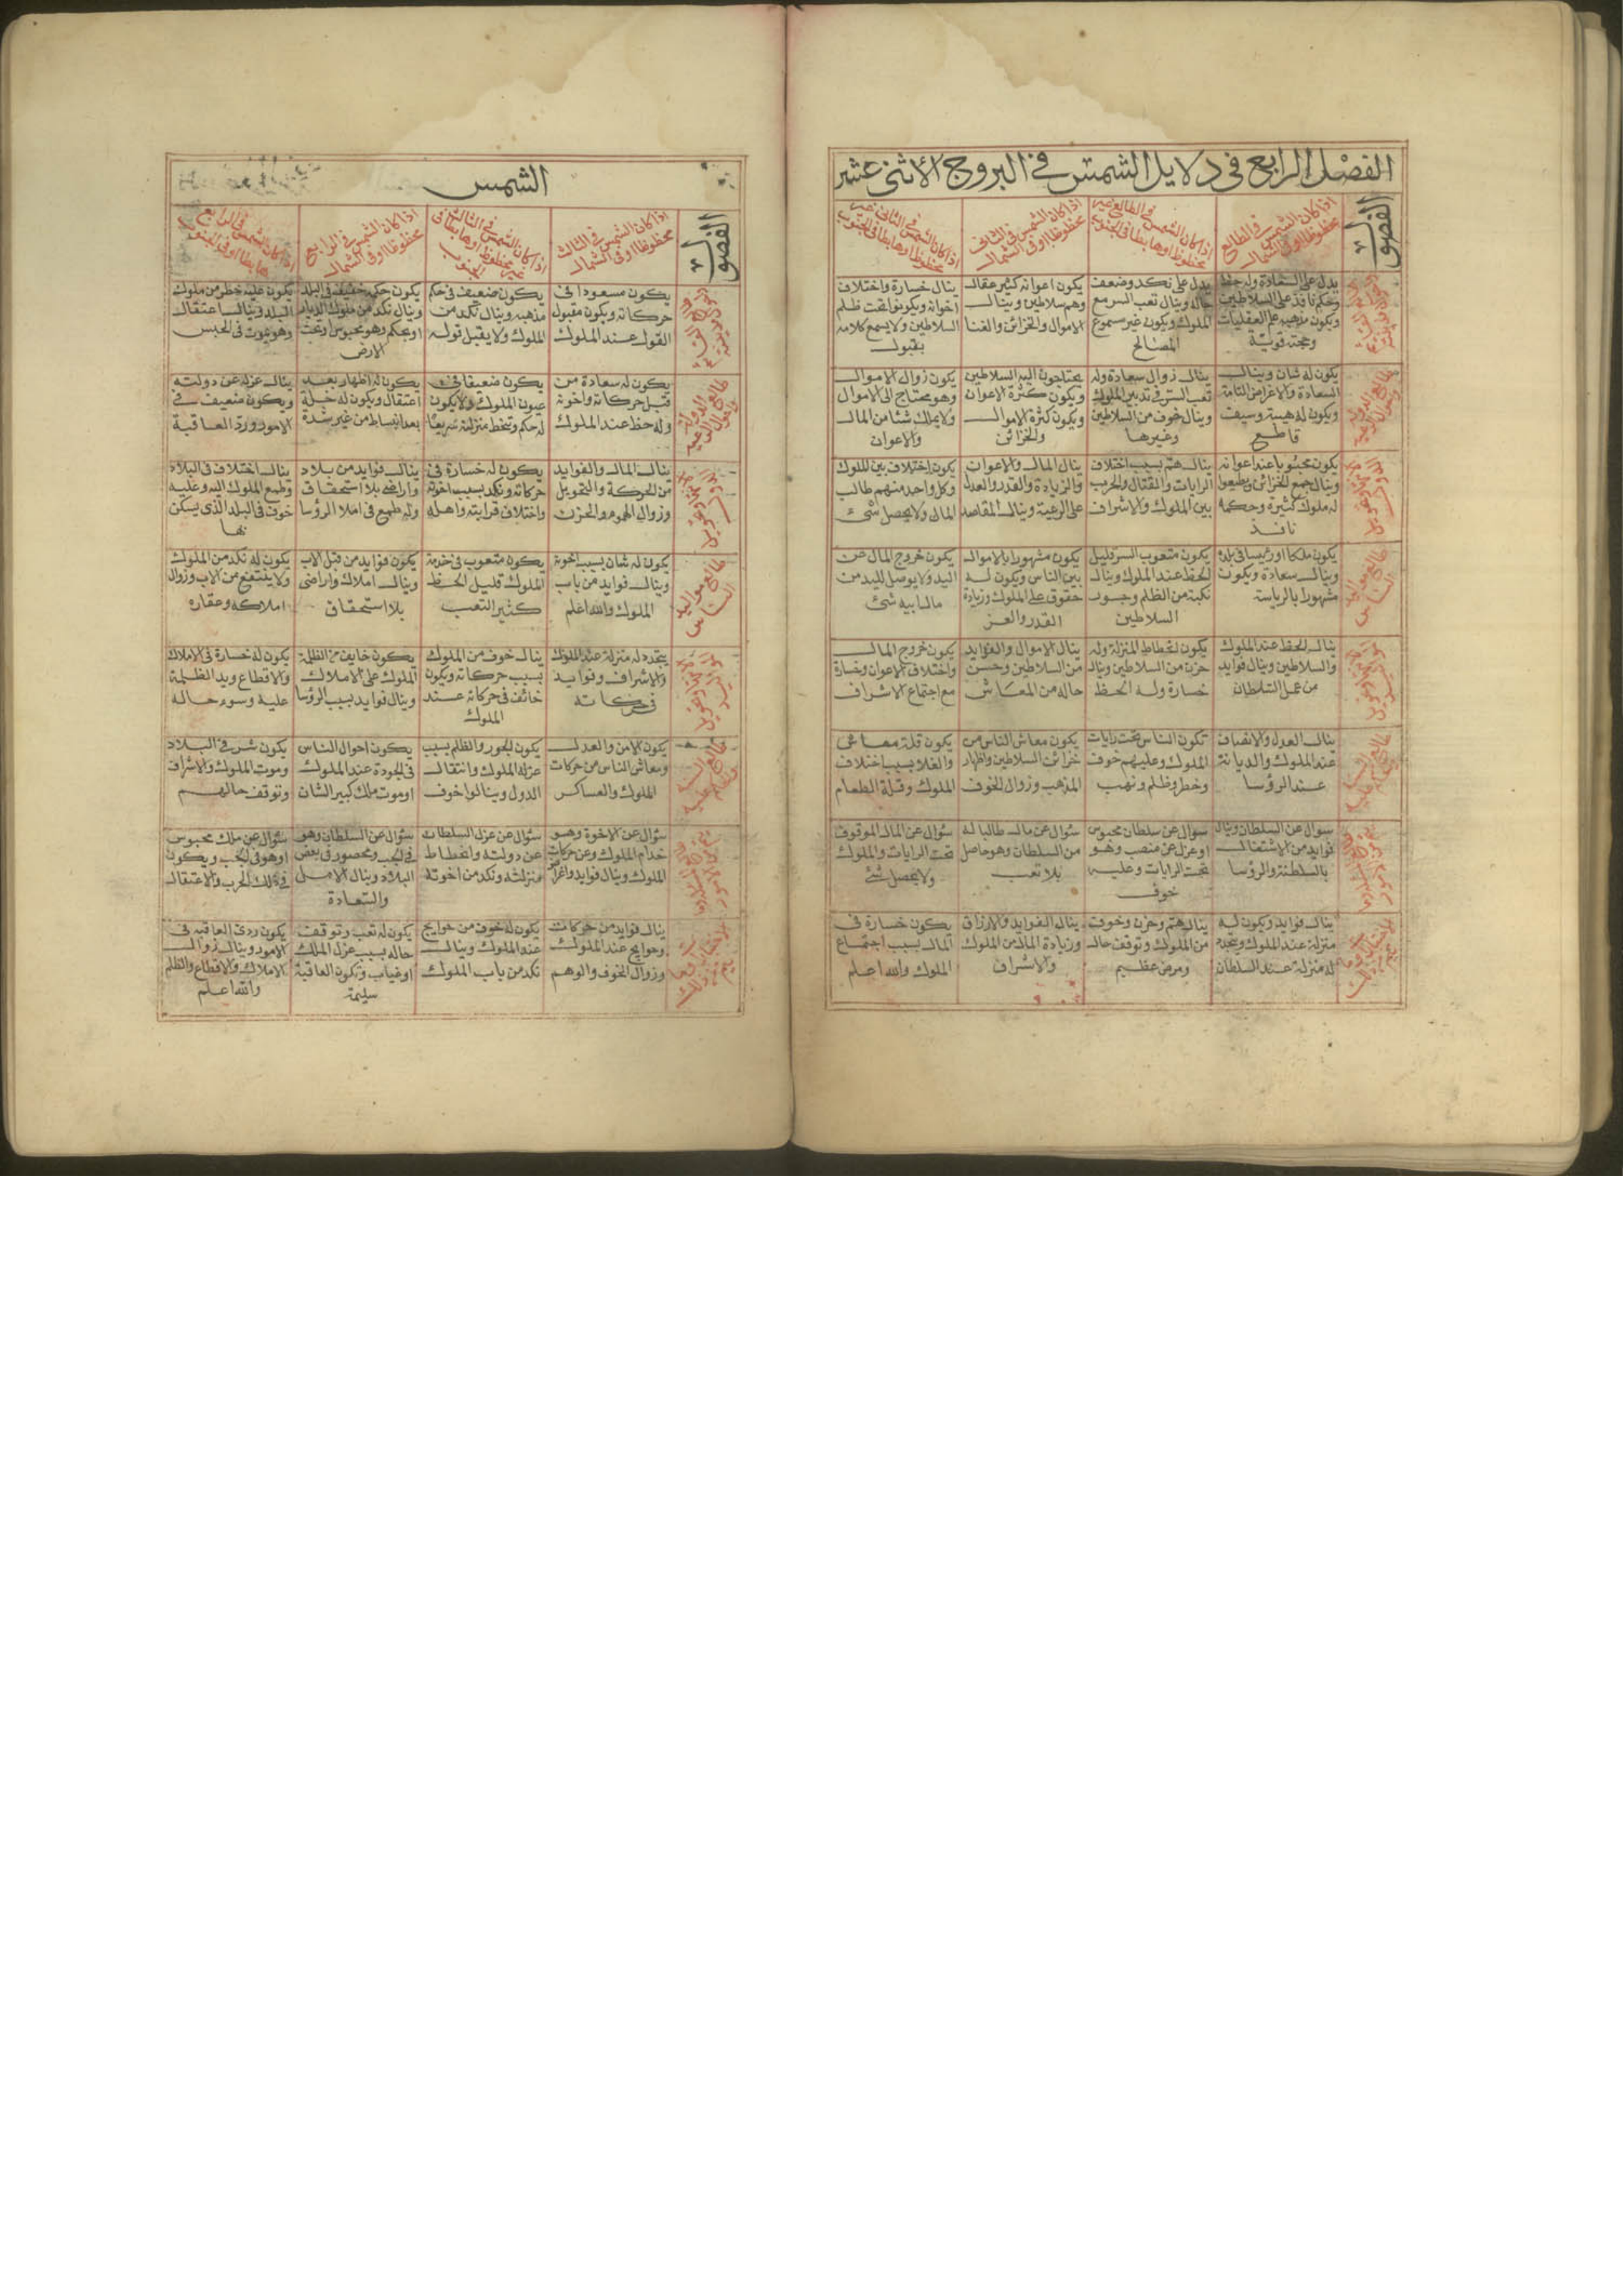 الفصل الرابع في دلايل الشمس في البروج الاثنى عشر
الفصول
اذا كان الشمس في الطالع
محظوظا او في الشمال
اذا كان الشمس في الطالع غير
محظوظ او هابطا في الجنوب
اذا كان الشمس في الثاني
محظوظا او في الشمال
اذا كان الشمس في الثاني غير
محظوظ او هابطا في الجنوب
يدل على السعادة وله حظ
وحكم نافذ على السلاطين
ويكون مذهبه علم العقليات
وحجته قوية
يدل على نكد وضعف
حاله وينال تعب السر مع
الملوك ويكون غير مسموع
المصالح
يكون اعوانه كثير عقال
وهم سلاطين وينال
الاموال والخزائن والغنا
ينال خسارة واختلاف
اخوانه ويكونوا تحت ظلم
السلاطين ولا يسمع كلامه
بقبول
يكون له شان وينال
السعادة والاغراض التامة
ويكون له هيبة وسيف
قاطع
ينال زوال سعادة وله
تعب السر في تدبير الملوك
وينال خوف من السلاطين
وغيرها
يحتاجون اليه السلاطين
ويكون كثرة الاعوان
ويكون كثرة الاموال
والخزائن
يكون زوال الاموال
وهو يحتاج الى الاموال
ولا يملك شئا من المال
والاعوان
يكون محبوبا عند اعوانه
وينال جمع الخزائن ويطيعوا
له ملوك كثيرة وحكمه
نافذ
ينال هم بسبب اختلاف
الرايات والقتال والحرب
بين الملوك والاشراف
ينال المال والاعوان
والزيادة والقدر والعدل
على الرعية وينال المقاصد
يكون اختلاف بين الملوك
وكل واحد منهم طالب
المال ولا يحصل شئ
طالع مواليد
الناس
يكون ملكا او رئيسا في بلده
وينال سعادة ويكون
مشهورا بالرياسة
يكون متعوب السر قليل
الحظ عند الملوك وينال
نكبة من الظلم وجور
السلاطين
يكون مشهورا بالاموال
بين الناس ويكون له
حقوق على الملوك وزيادة
القدر والعز
يكون خروج المال عن
اليد ولا يوصل لليد من
مال ابيه شئ
ينال الحظ عند الملوك
والسلاطين وينال فوايد
من عمل السلطان
يكون انحطاط المنزلة وله
حزن من السلاطين وينال
خسارة وله الحظ
ينال الاموال والفوايد
من السلاطين وحسن
حاله من المعاش
يكون خروج المال
واختلاف الاعوان وخسارة
مع اجتماع الاشراف
ينال العدل والانصاف
عند الملوك والديانة
عند الرؤسا
تكون الناس تحت رايات
الملوك وعليهم خوف
وخطر وظلم ونهب
يكون معاش الناس من
خزائن السلاطين واظهار
المذهب وزوال الخوف
يكون قلة معاش
والغلا بسبب اختلاف
الملوك وقلة الطعام
سؤال عن السلطان وينال
فوايد من الاشتغال
بالسلطنة والرؤسا
سؤال عن سلطان محبوس
او عزل عن منصب وهو
تحت الرايات وعليه
خوف
سؤال عن مال طالبا له
من السلطان وهو حاصل
بلا تعب
سؤال عن المال الموقوف
تحت الرايات والملوك
ولا يحصل شئ
ينال فوايد ويكون له
منزلة عند الملوك ويتجدد
له منزلة عند السلطان
ينال هم وحزن وخوف
من الملوك وتوقف حال
ومرض عظيم
ينال الفوايد والارزاق
وزيادة المال من الملوك
والاشراف
يكون خسارة في
المال بسبب اجتماع
الملوك والله اعلم
الشمس
الفصول
اذا كان الشمس في الثالث
محظوظا او في الشمال
اذا كان الشمس في الثالث
غير محظوظ او هابطا في
الجنوب
اذا كان الشمس في الرابع
محظوظا او في الشمال
اذا كان الشمس في الرابع
هابطا او في الجنوب
يكون مسعودا في
حركاته ويكون مقبول
القول عند الملوك
يكون ضعيف في حكم
مذهبه وينال نكد من
الملوك ولا يقبل قوله
يكون حكمه خفيف في البلد
وينال نكد من ملوك الديار
او يحكم وهو محبوس او تحت
الارض
يكون عليه خطر من ملوك
البلد وينال اعتقال
وهو يموت في الحبس
يكون له سعادة من
قبل حركاته واخوته
وله حظ عند الملوك
يكون ضعيفا في
عيون الملوك ولا يكون
له حكم وتنحط منزلته سريعا
يكون له اظهار بعد
اعتقال ويكون له خلة
بعد انبساط من غير شدة
ينال عزله عن دولته
ويكون ضعيف في
الامور وردة العاقبة
ينال المال والفوايد
من الحركة والتحويل
وزوال الهموم والحزن
يكون له خسارة في
حركاته ونكد بسبب اخوته
واختلاف قرابته واهله
ينال فوايد من بلاد
واراضى بلا استحقاق
وله طمع في املا الرؤسا
ينال اختلاف في البلاد
وطمع الملوك اليه وعليه
خوف في البلد الذي يسكن
بها
طالع مواليد
الناس
يكون له شان بسبب اخوته
وينال فوايد من باب
الملوك والله اعلم
يكون متعوب في خدمة
الملوك قليل الحظ
كثير التعب
يكون فوايد من قبل الاب
وينال املاك واراضى
بلا استحقاق
يكون له نكد من الملوك
ولا ينتفع من الاب وزوال
املاكه وعقاره
يتجدد له منزلة عند الملوك
والاشراف وفوايد
في حركاته
ينال خوف من الملوك
بسبب حركاته ويكون
خائف في حركاته عند
الملوك
يكون خايف من الظلمة
الملوك على الاملاك
وينال فوايد بسبب الرؤسا
يكون له خسارة في الاملاك
والاقطاع ويد الظلمة
عليه وسوء حاله
يكون الامن والعدل
ومعاش الناس من حركات
الملوك والعساكر
يكون الجور والظلم بسبب
عزل الملوك وانتقال
الدول وينالوا خوف
يكون احوال الناس
في الجودة عند الملوك
او موت ملك كبير الشان
يكون شر في البلاد
وموت الملوك والاشراف
وتوقف حالهم
سؤال عن الاخوة وهو
خدام الملوك وعن حركات
الملوك وينال فوايد واغراض
سؤال عن عزل السلطان
عن دولته وانحطاط
منزلته ونكد من اخوته
سؤال عن السلطان وهو
في الجب ومحصور في بعض
البلاد وينال الامل
والسعادة
سؤال عن ملك محبوس
او هو في الجب ويكون
في ذلك الحرب والاعتقال
ينال فوايد من حركات
وحوايج عند الملوك
وزوال الخوف والوهم
يكون له خوف من حوايج
عند الملوك وينال
نكد من باب الملوك
يكون له تعب وتوقف
حاله بسبب عزل الملك
او غياب وتكون العاقبة
سليمة
يكون ردئ العاقبة في
الامور وينال زوال
الاملاك والاقطاع والظلم
والله اعلم